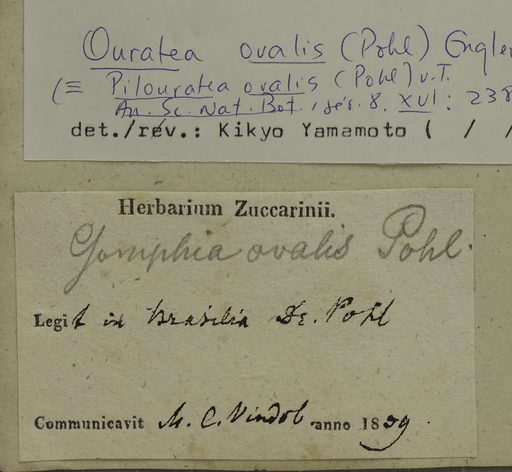 Ouratea ovalis (Pohl) Engler
(≡ Pilouratea ovalis (Pohl) v.T.
An. Sc. Nat. Bot., sér. 8. XVI: 238
det./rev.: Kikyo Yamamoto ( / /
Herbarium Zuccarinii.
Gomphia ovalis Pohl.
Legit in Brasilia Dr. Pohl
Communicavit M. C. Vindob. anno 1839.